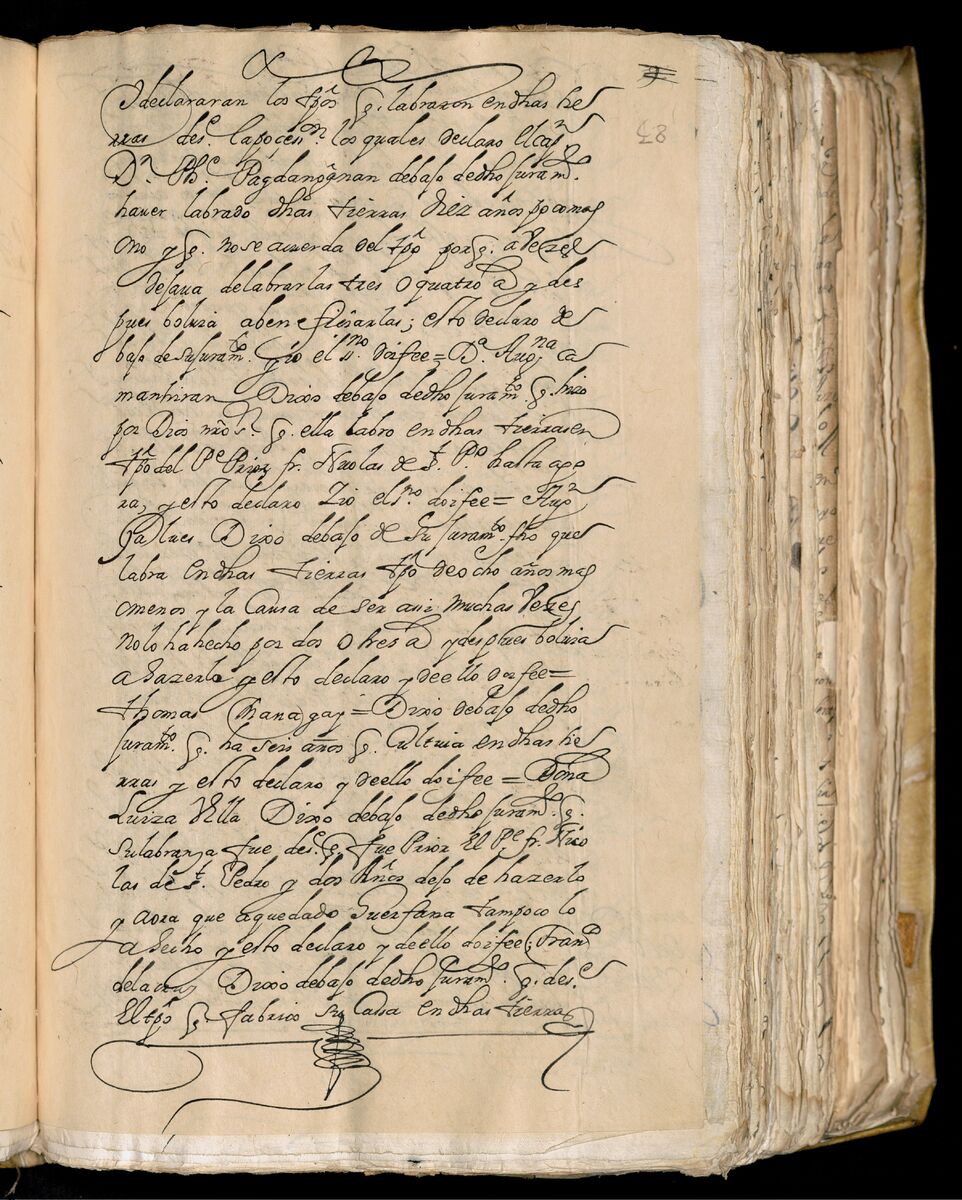 declararan los tpōs q̄. labraron en dhas tie
rras des.e la poçes.on los quales declaro el Cap.n
D.n Ph.e Pagdanganan debaso de dho juram.to
hauer labrado dhas tierras diez años poco mas
o no y q̄. no se acuerda del tpō por q̄. a vezes
desaua de labrarlas tres o quatro a.s y des
pues boluia a beneficiarlas; esto declaro de
baso de su juram.to y io el ss.no doi fee = D.a Aug.na
manhiran Dixo debaso de dho juram.to q̄. hizo
por Dios nrō s.r q̄. ella labro en dhas tierras en
tpō del P.e Prior fr. Nicolas de S.t P.o hasta ago
ra, y esto declaro Yio el ss.no doi fee = Aug.n
Dixo debaso de su juram.to fho que
labra en dhas tierras tpō de ocho años mas
o menos y la causa de ser assi muchas vezes
no lo ha hecho por dos o tres a.s y despues boluia
a hazerlo y esto declaro y de ello doi fee =
Thomas = Dixo debaso de dho
juram.to q̄. ha seis años q̄. cultiuia en dhas tie
rras y esto declaro y de ello doi fee = Dona
Luiza Dixo debaso de dho juram.to q̄.
su labranza fue des.e q̄. fue Prior El P.e fr. Nico
las de S.t Pedro y dos Años deso de hazerlo
y aora que a quedado Guerfana tampoco lo
a hecho y esto declaro y de ello doi fee; Fran.co
de la cruz Dixo debaso de dho juram.to q̄. des.e
El tpō q̄. fabrico su Cassa en dhas tierras